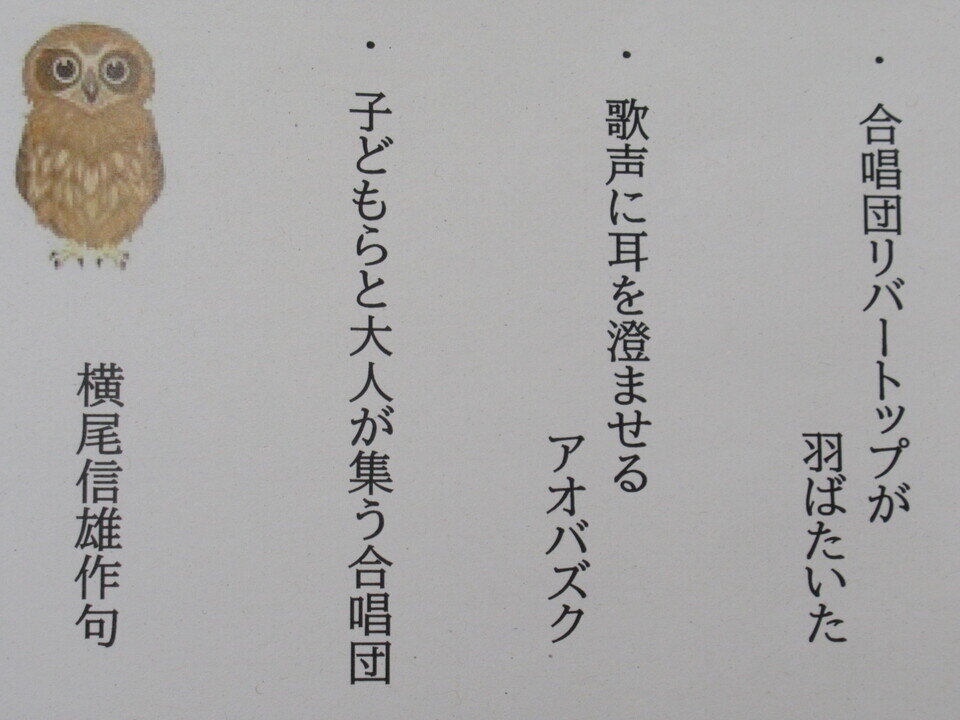 ・合唱団リバートップが
羽ばたいた
・歌声に耳を澄ませる
アオバズク
・子どもらと大人が集う合唱団
横尾信雄作句